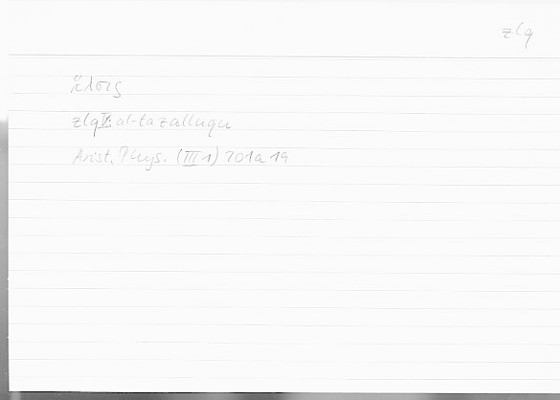 zlq
ἅλσις
zlq V: al-tazalluqu
Arist. Phys. (III 1) 201a19